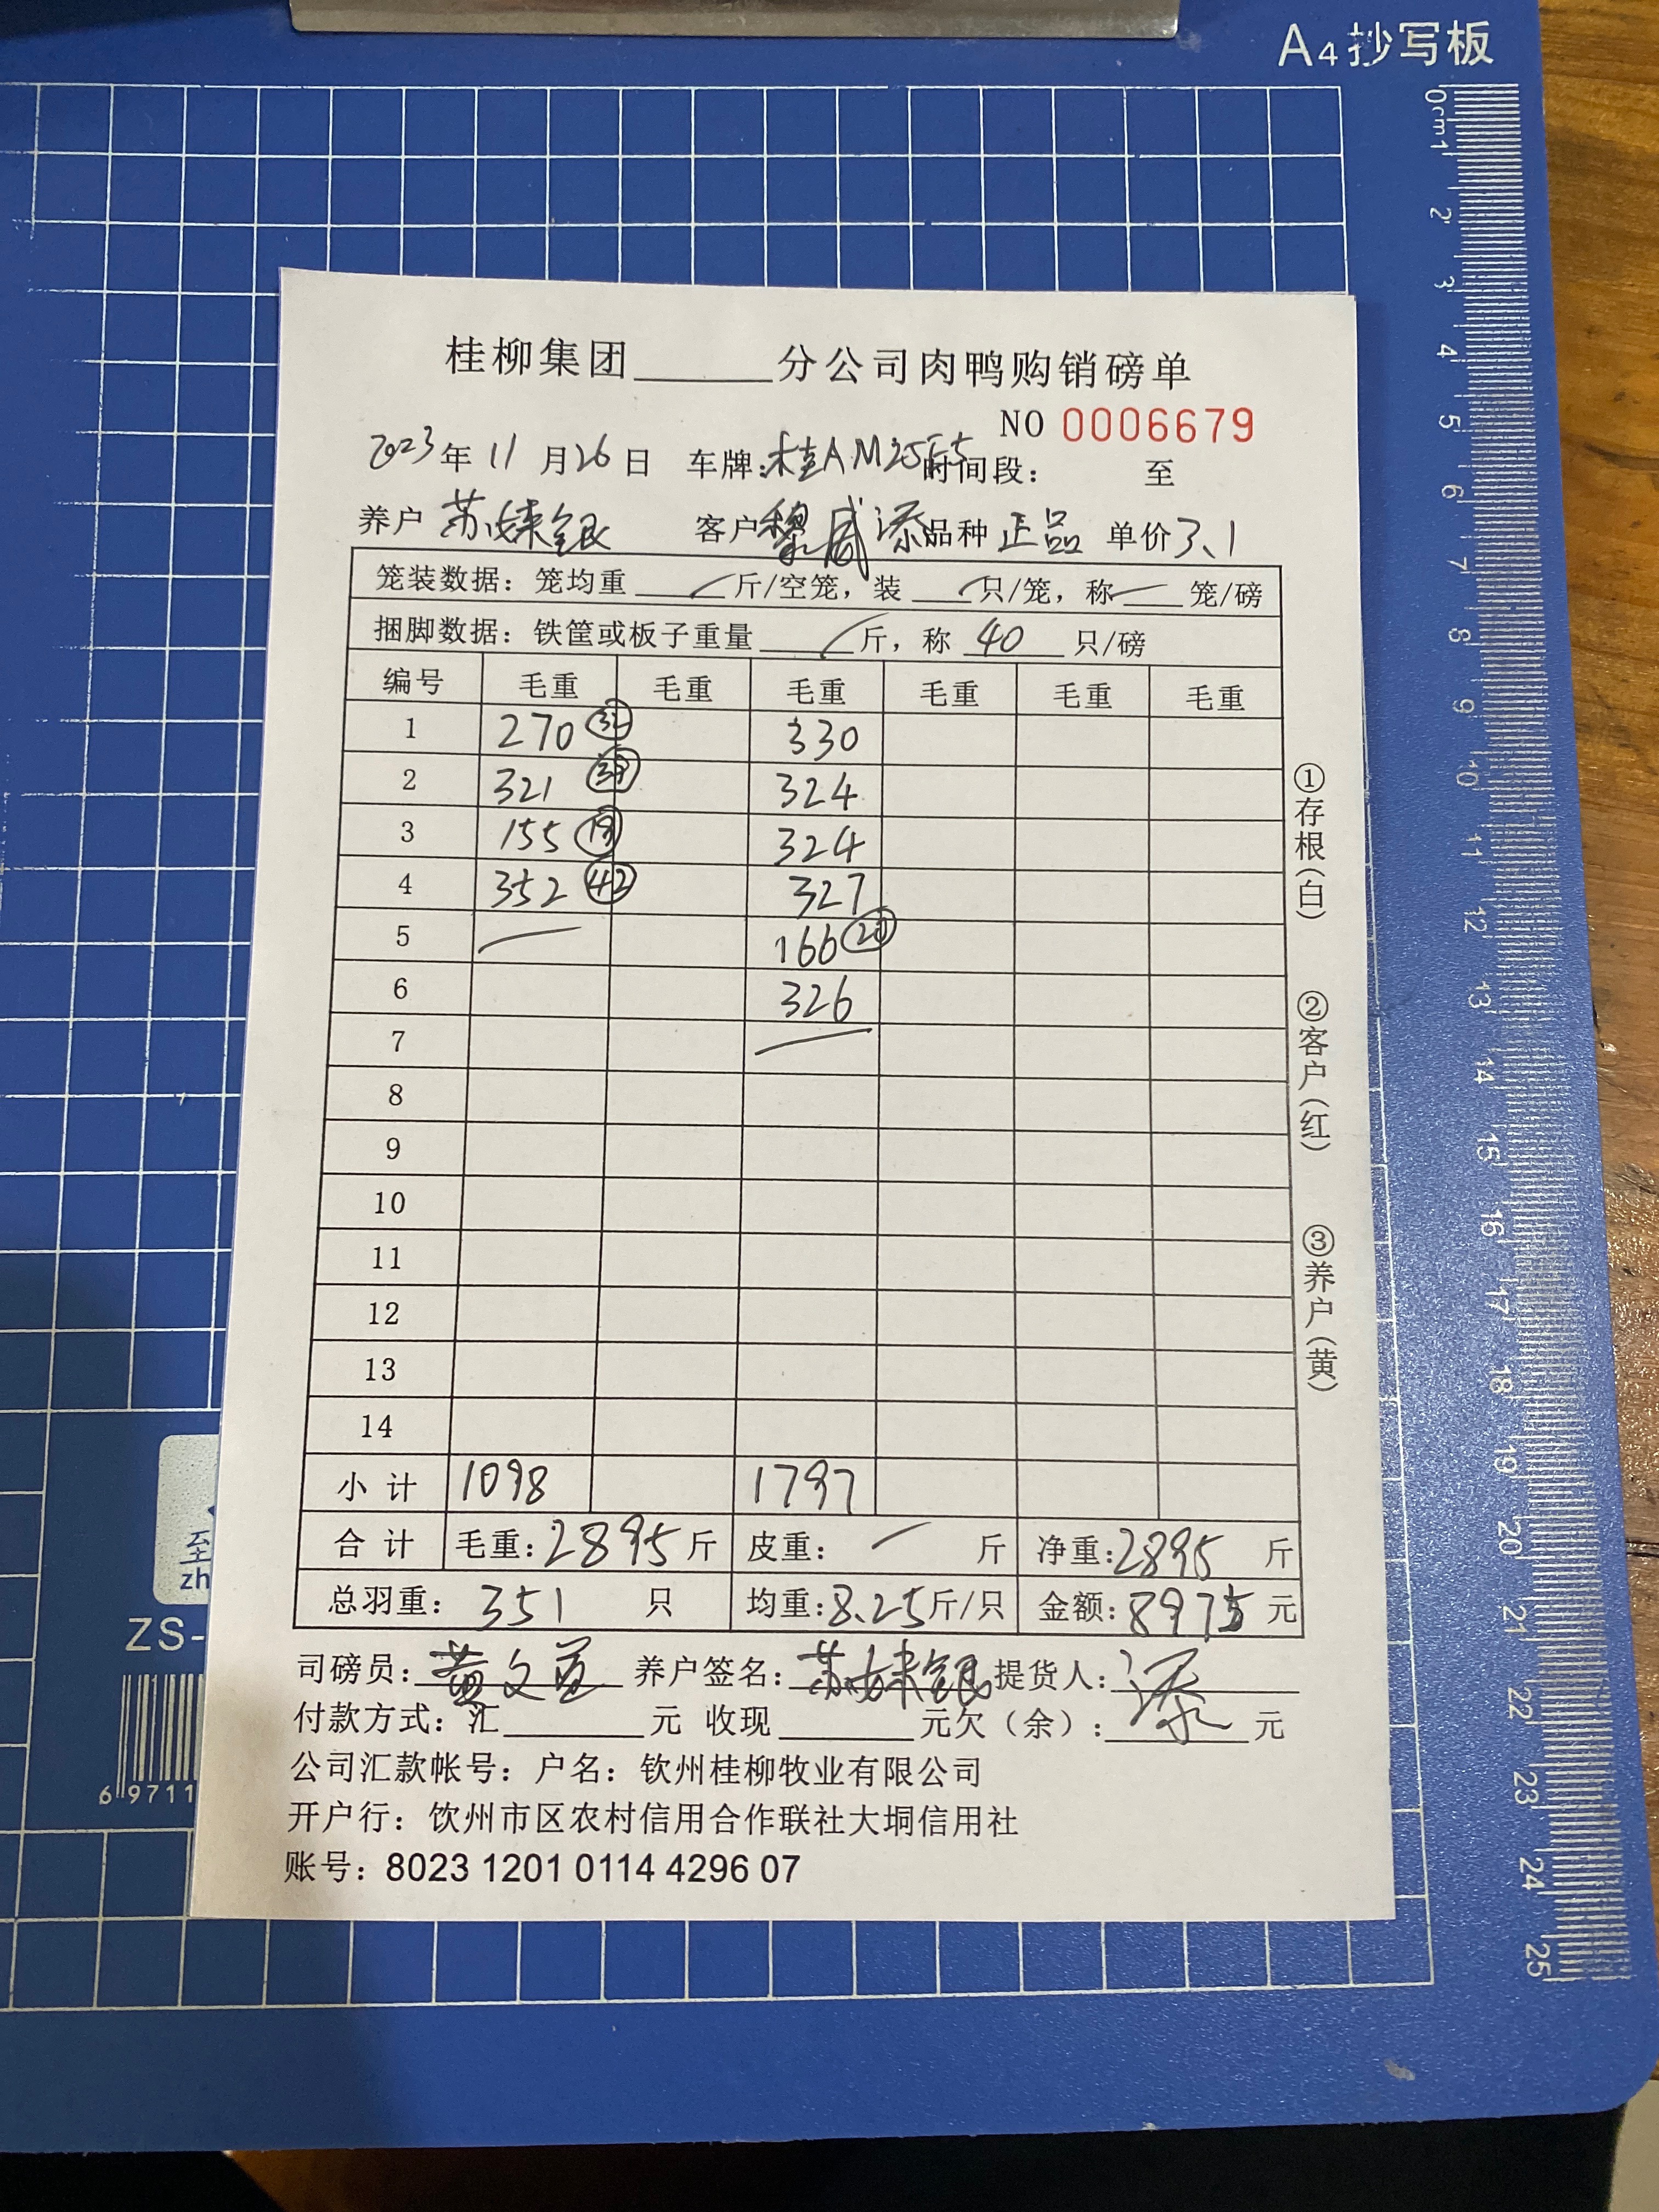 A4抄写板
0cm1 2 3 4 5 6 7 8 9 10 11 12 13 14 15 16 17 18 19 20 21 22 23 24 25
桂柳集团______分公司肉鸭购销磅单
NO 0006679
2023年11月26日 车牌:桂AM25F5 时间段: 至
养户 苏妹银 客户 黎威添 品种 正品 单价 3.1
笼装数据:笼均重 / 斤/空笼,装 / 只/笼,称 / 笼/磅
捆脚数据:铁筐或板子重量 / 斤,称 40 只/磅
编号 毛重 毛重 毛重 毛重 毛重 毛重
1 270 330
2 321 324
3 155 (19) 324
4 352 (42) 327
5 166 (20)
6 326
7
8
9
10
11
12
13
14
小计 1098 1797
合计 毛重:2895斤 皮重: 斤 净重:2895 斤
总羽重:351 只 均重:8.25斤/只 金额:8975元
司磅员:黄文 养户签名:苏妹银 提货人:添
付款方式:汇______元 收现______元欠(余):______元
公司汇款帐号:户名:钦州桂柳牧业有限公司
开户行:饮州市区农村信用合作联社大垌信用社
账号:8023 1201 0114 4296 07
①存根(白)
②客户(红)
③养户(黄)
至
zh
ZS-
6 9711